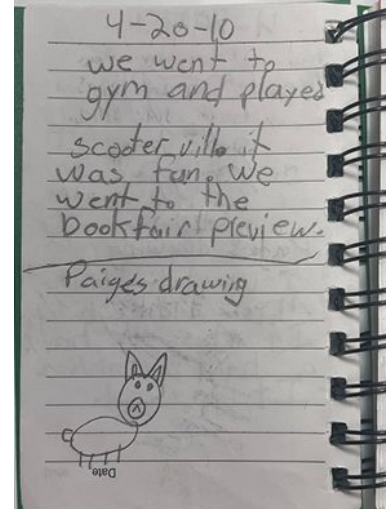 4-20-10
we went to
gym and played
scooter ville it
was fun. we
went to the
bookfair pleview.
Paiges drawing
Date